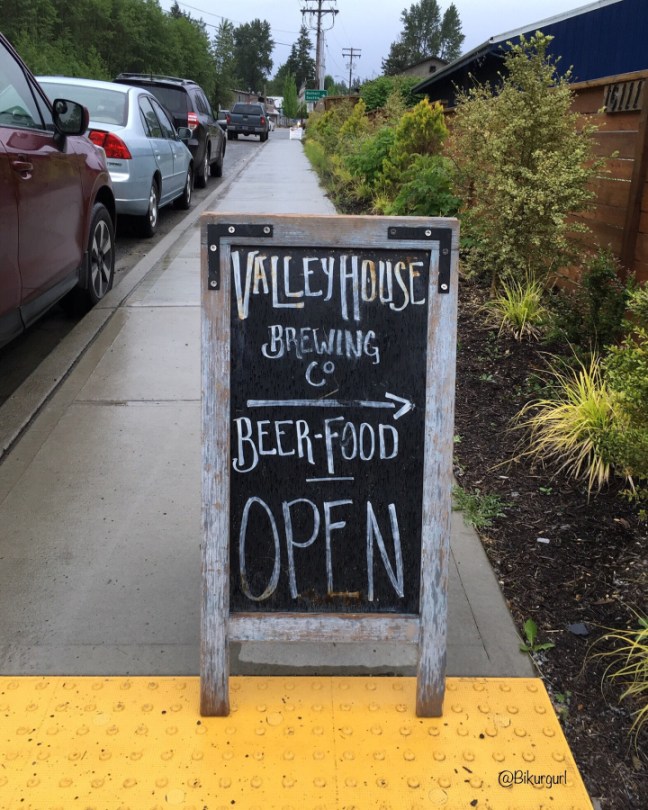 VALLEYHOUSE
BREWING
CO
BEER-FOOD
OPEN
@Bikurgurl